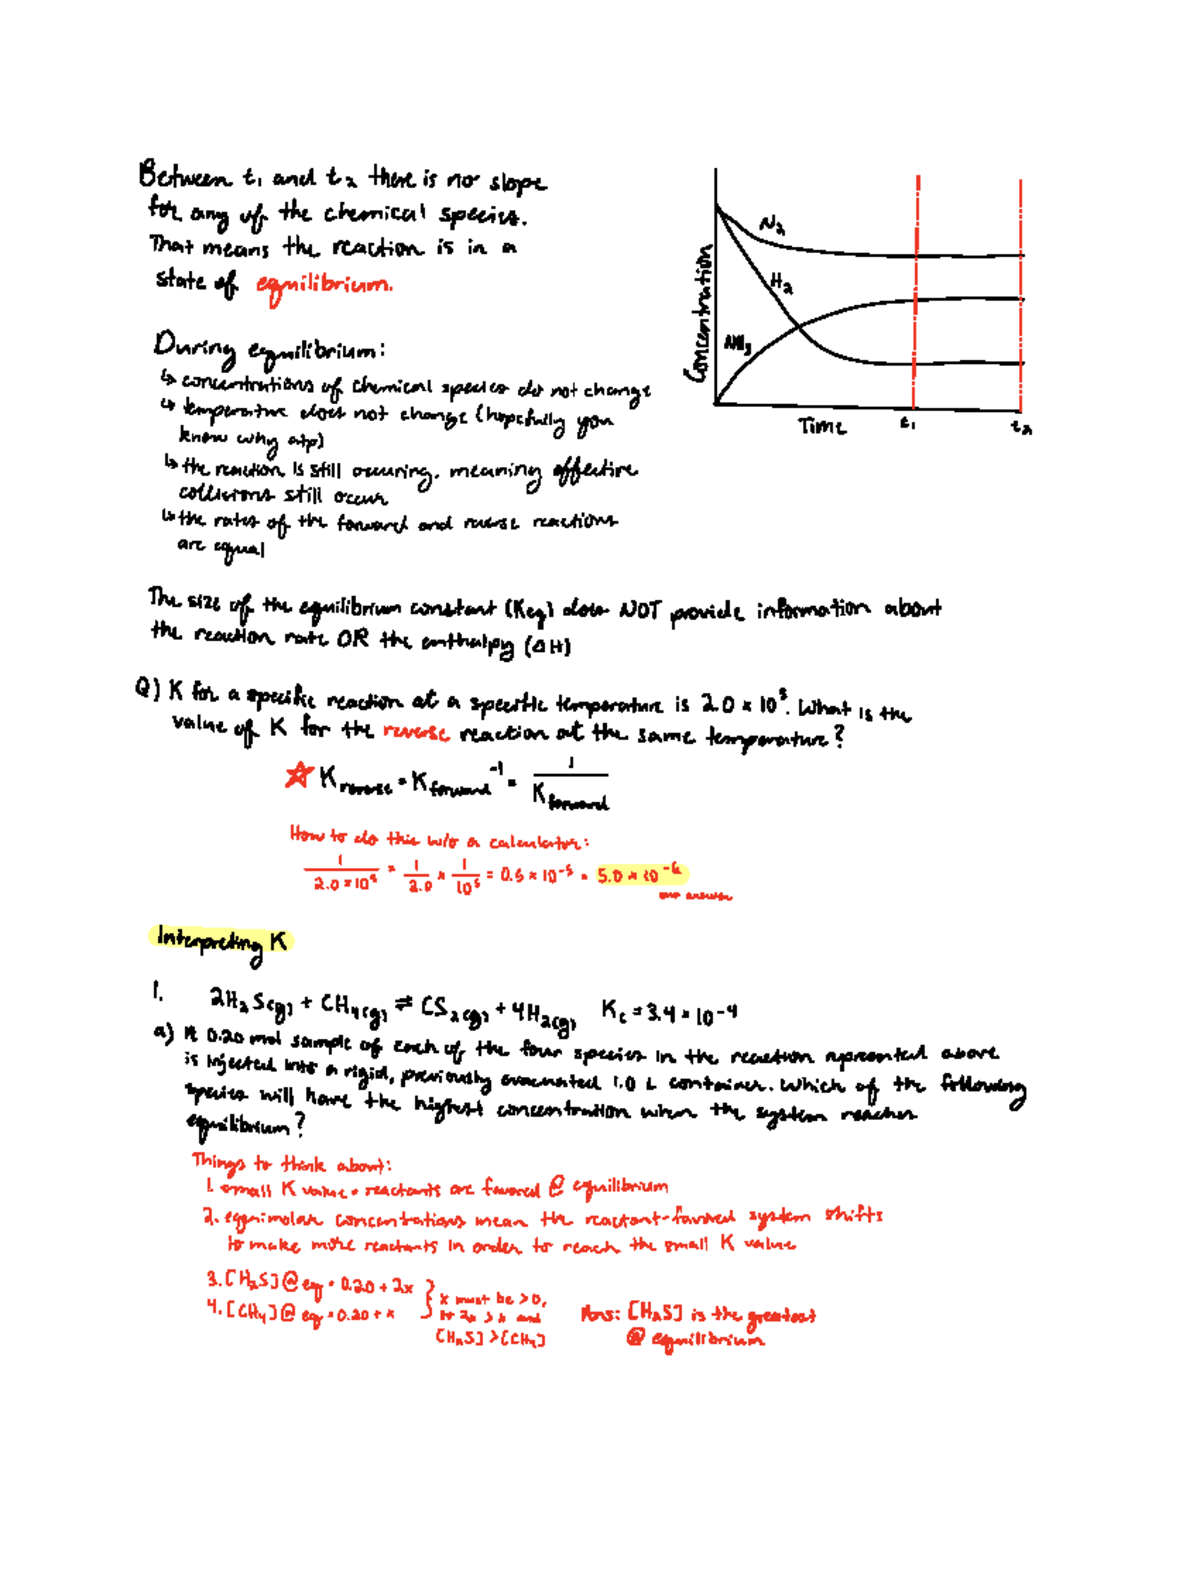 Between t₁ and t₂ there is no slope
for any of the chemical species.
That means the reaction is in a
state of equilibrium.
Concentration
N₂
H₂
NH₃
Time
t₁
t₂
During equilibrium:
↳ concentrations of chemical species do not change
↳ temperature does not change (hopefully you
know why atp)
↳ the reaction is still occuring, meaning effective
collisions still occur
↳ the rates of the forward and reverse reactions
are equal
The size of the equilibrium constant (Keq) does NOT provide information about
the reaction rate OR the enthalpy (ΔH)
Q) K for a specific reaction at a specific temperature is 2.0 × 10⁵. What is the
value of K for the reverse reaction at the same temperature?
☆ K reverse = K forward⁻¹ = 1 / K forward
How to do this w/o a calculator:
1 / 2.0 × 10⁵ = 1 / 2.0 × 1 / 10⁵ = 0.5 × 10⁻⁵ = 5.0 × 10⁻⁶
our answer
Interpreting K
1. 2H₂S(g) + CH₄(g) ⇌ CS₂(g) + 4H₂(g) Kc = 3.4 × 10⁻⁴
a) A 0.20 mol sample of each of the four species in the reaction represented above
is injected into a rigid, previously evacuated 1.0 L container. Which of the following
species will have the highest concentration when the system reaches
equilibrium?
Things to think about:
1. small K value = reactants are favored @ equilibrium
2. equimolar concentrations mean the reactant-favored system shifts
to make more reactants in order to reach the small K value
3. [H₂S] @ eq = 0.20 + 2x
4. [CH₄] @ eq = 0.20 + x
x must be > 0,
so 2x > x and
[H₂S] > [CH₄]
Ans: [H₂S] is the greatest
@ equilibrium